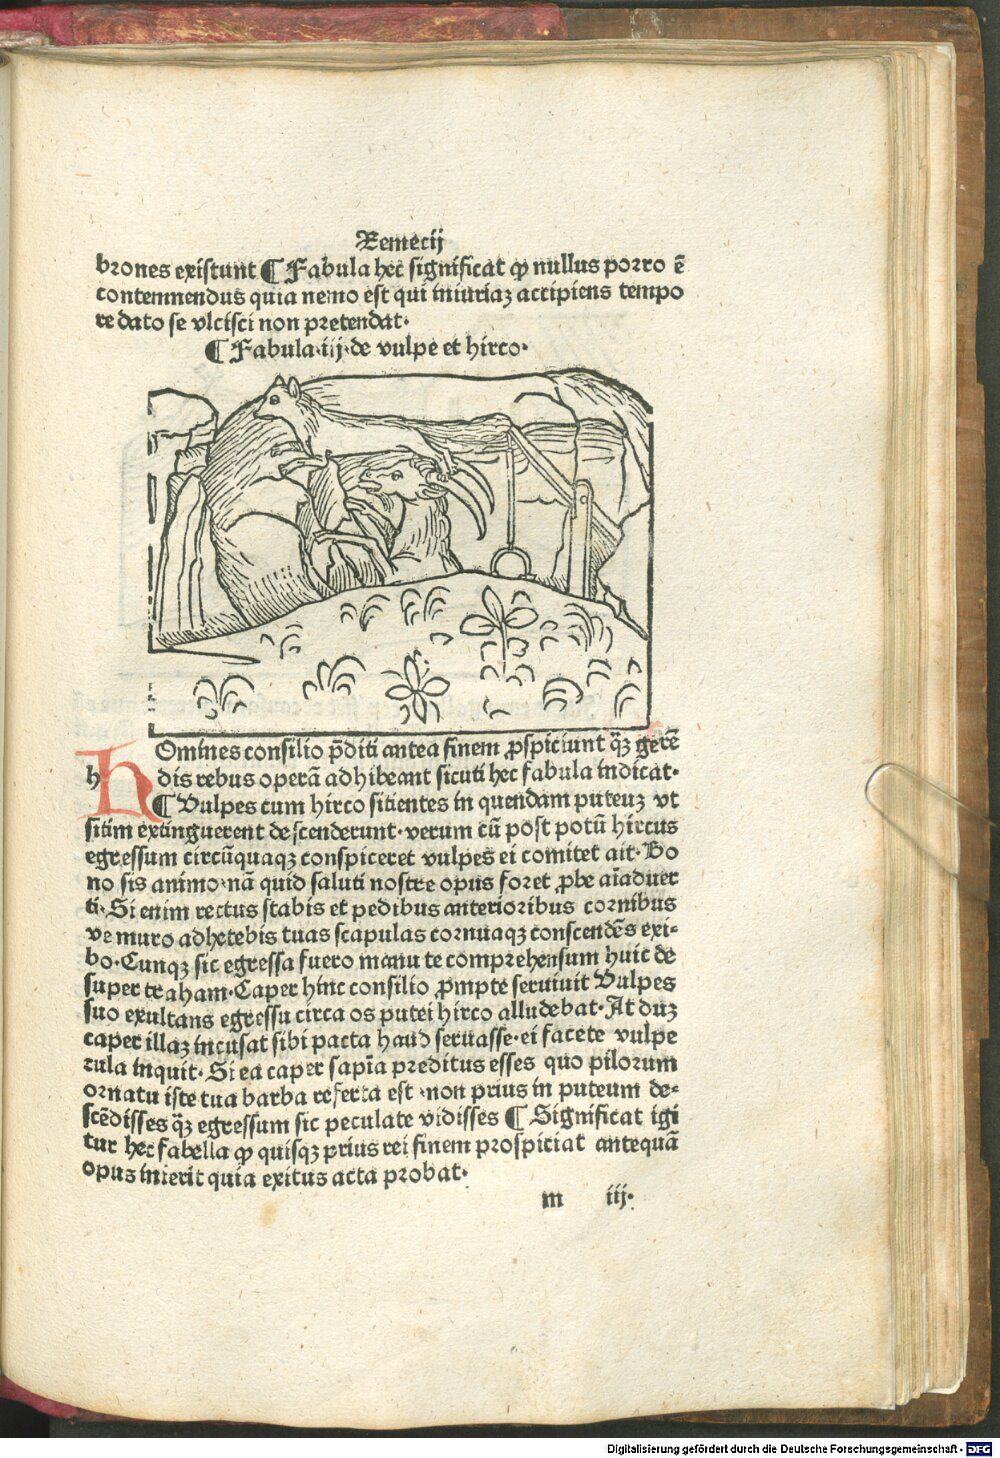 Remecij
brones existunt ¶ Fabula hec significat ꝙ nullus porro ē
contemnendus quia nemo est qui iniuriaꝫ accipiens tempo
re dato se vlcisci non pretendat·
¶ Fabula·iij·de vulpe et hirco·
HOmines consilio p̄diti antea finem ꝓspiciunt q̄ꝫ gerē
h dis rebus operā adhibeant sicuti hec fabula indicat·
¶ Vulpes cum hirco sitientes in quendam puteuꝫ vt
sitim extinguerent descenderunt·verum cū post potū hircus
egressum circūquaqꝫ conspiceret vulpes ei comitet ait·Bo
no sis animo·nā quid saluti nostre opus foret ꝓbe aīaduer
ti·Si enim rectus stabis et pedibus anterioribus cornibus
ve muro adhetebis tuas scapulas cornuaqꝫ conscendēs exi-
bo·Cunqꝫ sic egressa fuero manu te comprehensum huic de
super traham·Caper hinc consilio ꝓmpte seruiuit Vulpes
suo exultans egressu circa os putei hirco alludebat·At duꝫ
caper illaꝫ incusat sibi pacta haud seruasse·ei facete vulpe
cula inquit·Si ea caper sapīa preditus esses quo pilorum
ornatu iste tua barba referta est·non prius in puteum de-
scēdisses q̄ꝫ egressum sic peculate vidisses ¶ Significat igi
tur hec fabella ꝙ quisqꝫ prius rei finem prospiciat antequā
opus inierit quia exitus acta probat·
m iij·
Digitalisierung gefördert durch die Deutsche Forschungsgemeinschaft - DFG